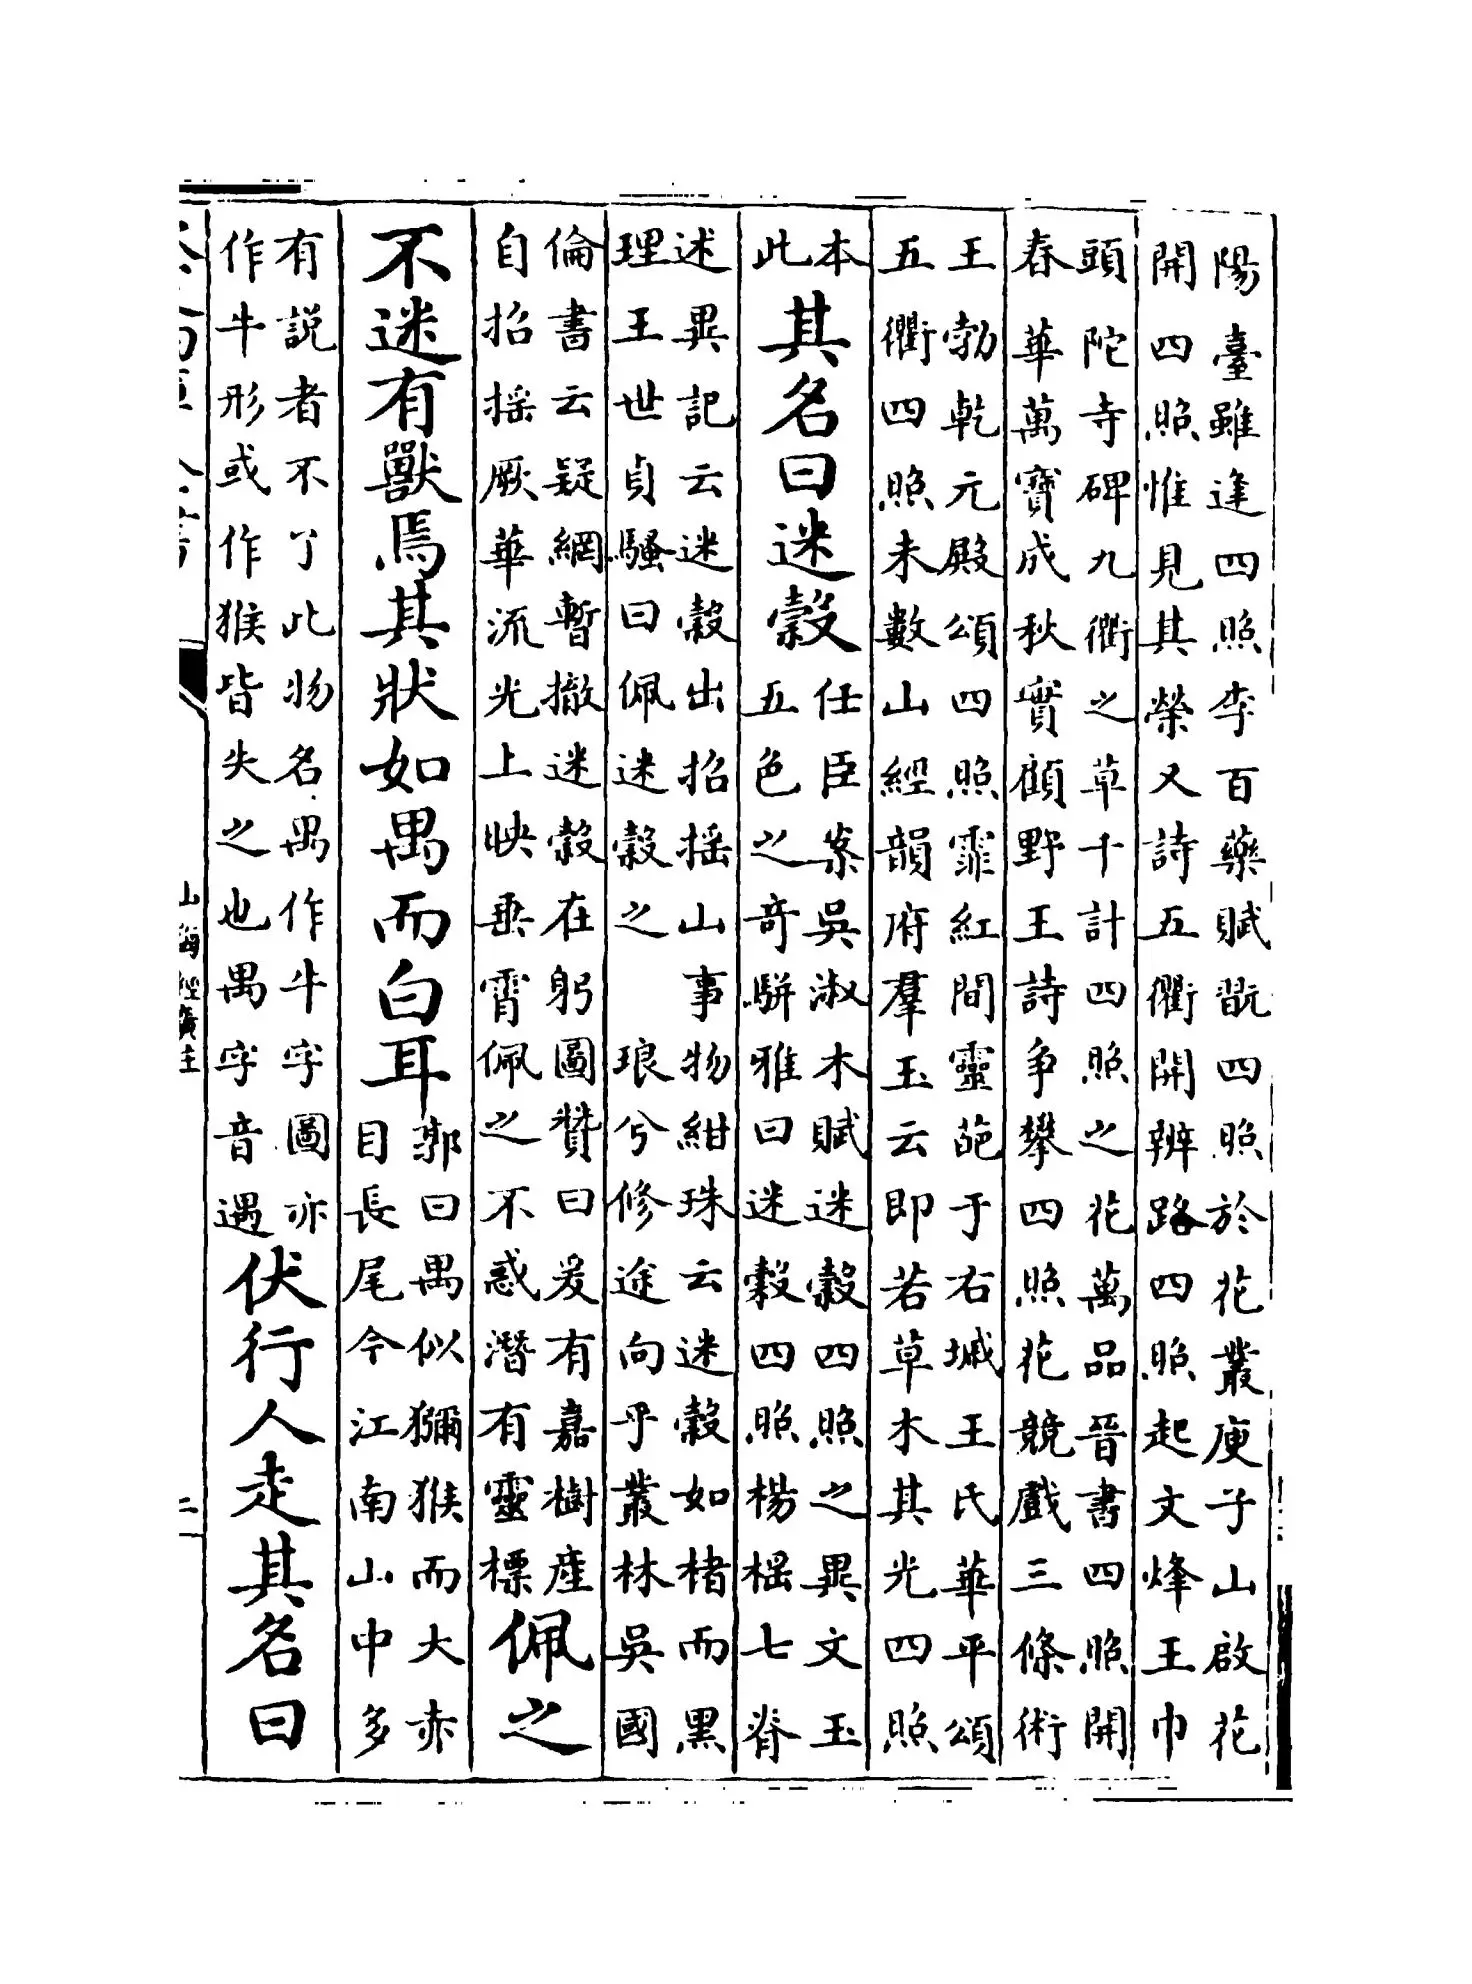 陽臺雖逢四照李百藥賦翫四照於花叢庾子山啟花
開四照惟見其榮又詩五衢開辨路四照起文烽王巾
頭陀寺碑九衢之草千計四照之花萬品晉書四照開
春華萬寳成秋實顧野王詩爭攀四照花競戲三條術
王勃乾元殿頌四照霏紅間靈葩于右墄王氏華平頌
五衢四照未數山經韻府羣玉云即若草木其光四照
本
此
其名曰迷榖
任臣案吳淑木賦迷榖四照之異文玉
五色之奇駢雅曰迷榖四照楊榣七脊
述異記云迷榖出招搖山事物紺珠云迷榖如楮而黑
理王世貞騷曰佩迷榖之琅兮修途向乎叢林吳國
倫書云疑網暫撤迷榖在躬圖贊曰爰有嘉樹産
自招搖厥華流光上映垂霄佩之不惑潛有靈標
佩之
不迷有獸焉其狀如禺而白耳
郭曰禺似獼猴而大赤
目長尾今江南山中多
有説者不了此物名禺作牛字圖亦
作牛形或作猴皆失之也禺字音遇
伏行人走其名曰
山海經廣注
二